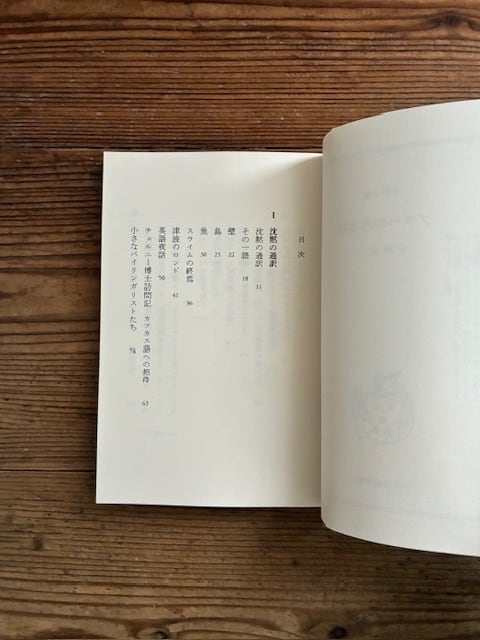 目次
I 沈黙の通訳
沈黙の通訳 11
その一語 18
壁 22
島 25
魚 30
スライムの終焉 36
津波のロンド 41
英語夜話 50
チェルニー博士訪問記 カフカス語への招待 63
小さなバイリンガリストたち 78